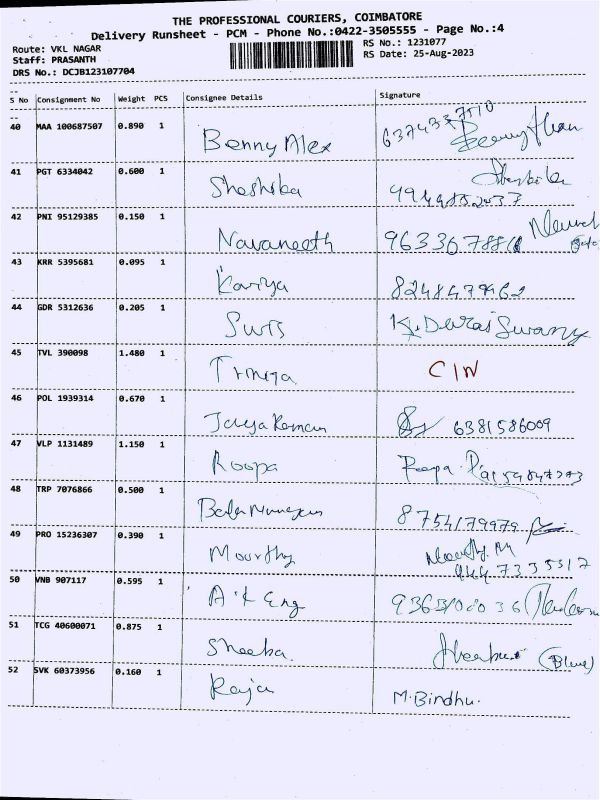 THE PROFESSIONAL COURIERS, COIMBATORE
Delivery Runsheet - PCM - Phone No.:0422-3505555 - Page No.:4
Route: VKL NAGAR
RS No.: 1231077
Staff: PRASANTH
RS Date: 25-Aug-2023
DRS No.: DCJB123107704
S No Consignment No Weight PCS Consignee Details Signature
40 MAA 100687507 0.890 1 Benny Alex
41 PGT 6334042 0.600 1
42 PNI 95129385 0.150 1 Navaneeth
43 KRR 5395681 0.095 1 Kaviya
44 GDR 5312636 0.205 1 K. Durai Swamy
45 TVL 390098 1.480 1 C/N
46 POL 1939314 0.670 1 6381586009
47 VLP 1131489 1.150 1 Roopa Roopa
48 TRP 7076866 0.500 1 8754179979
49 PRO 15236307 0.390 1 Moorthy
50 VNB 907117 0.595 1
51 TCG 40600071 0.875 1 Sheeba. (Blue)
52 SVK 60373956 0.160 1 Raja M. Bindhu.